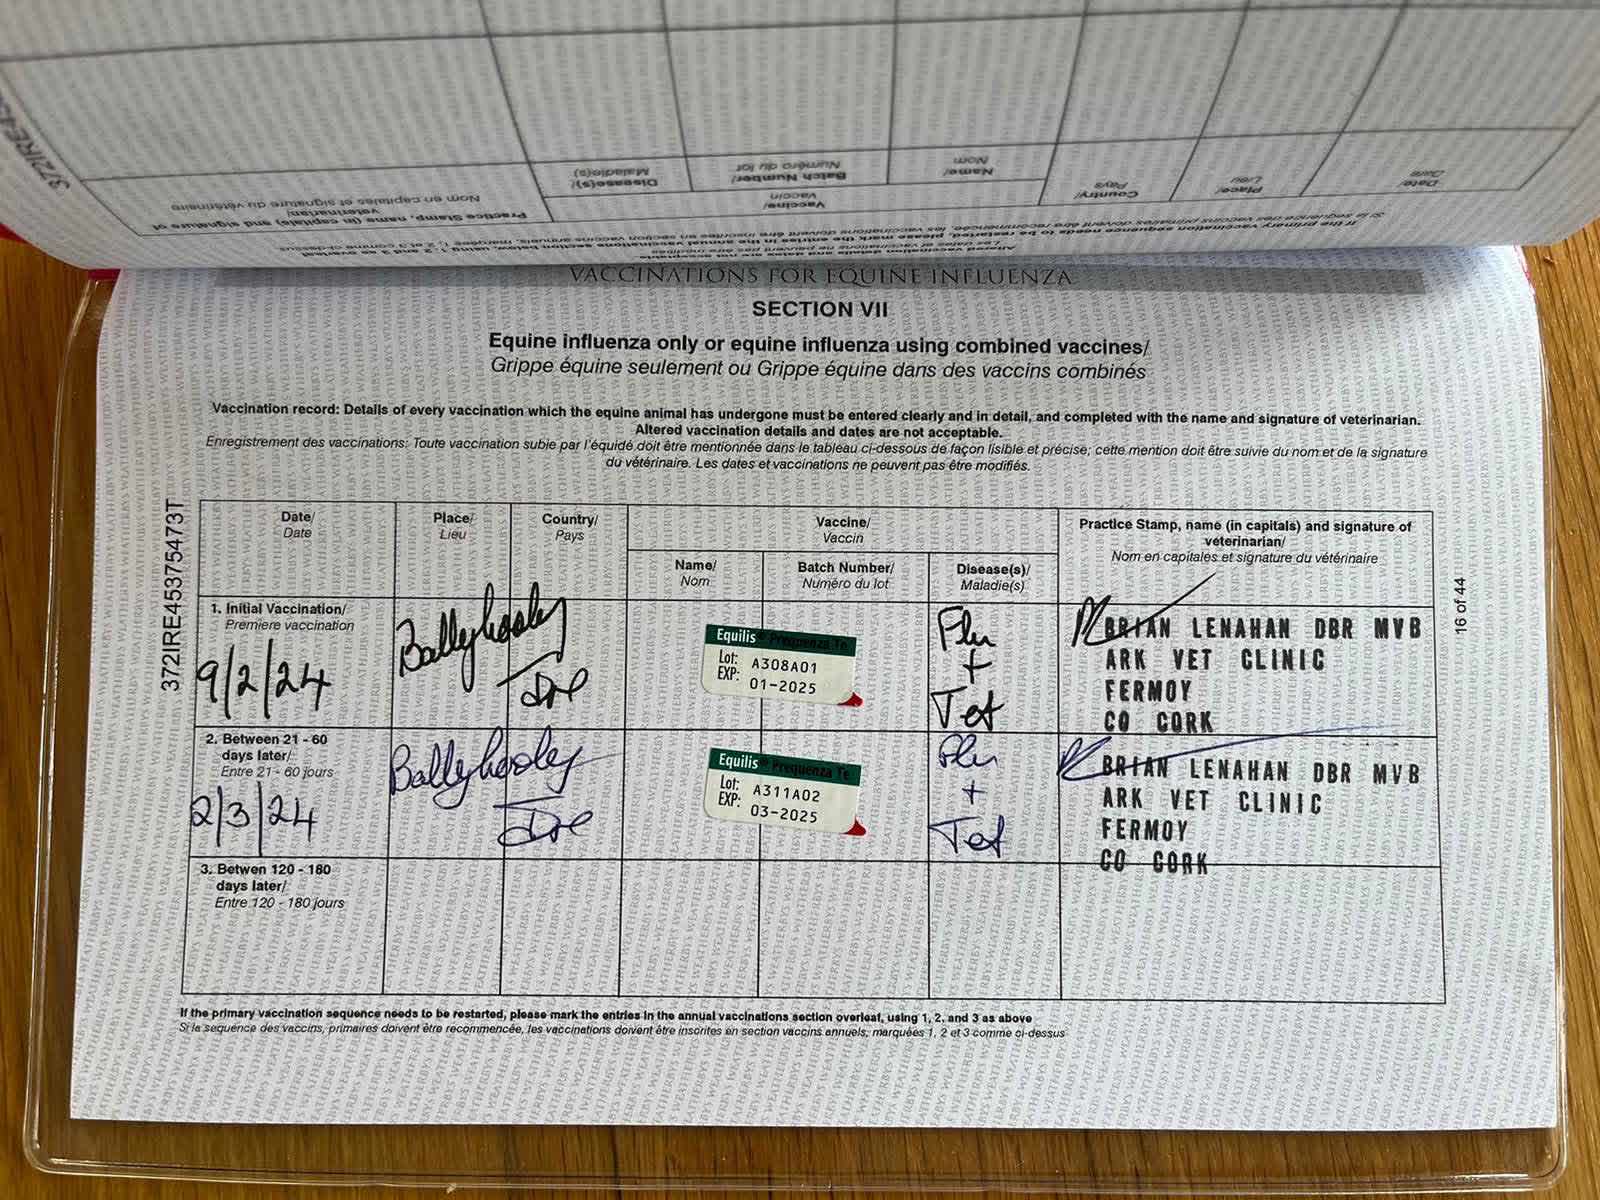 372IRE45
Practice Stamp, name (in capitals) and signature of veterinarian/
Nom en capitales et signature du vétérinaire
Disease(s)/
Maladie(s)
Vaccine/
Vaccin
Batch Number/
Numéro du lot
Name/
Nom
Country/
Pays
Place/
Lieu
Date/
Date
VACCINATIONS FOR EQUINE INFLUENZA
SECTION VII
Equine influenza only or equine influenza using combined vaccines/
Grippe équine seulement ou Grippe équine dans des vaccins combinés
Vaccination record: Details of every vaccination which the equine animal has undergone must be entered clearly and in detail, and completed with the name and signature of veterinarian.
Altered vaccination details and dates are not acceptable.
Enregistrement des vaccinations: Toute vaccination subie par l'équidé doit être mentionnée dans le tableau ci-dessous de façon lisible et précise; cette mention doit être suivie du nom et de la signature
du vétérinaire. Les dates et vaccinations ne peuvent pas être modifiés.
372IRE45375473T
16 of 44
Date/
Date
Place/
Lieu
Country/
Pays
Vaccine/
Vaccin
Name/
Nom
Batch Number/
Numéro du lot
Disease(s)/
Maladie(s)
Practice Stamp, name (in capitals) and signature of
veterinarian/
Nom en capitales et signature du vétérinaire
1. Initial Vaccination/
Premiere vaccination
9/2/24
Ballyhooley
Ire
Equilis® Prequenza Te
Lot: A308A01
EXP: 01-2025
Flu
+
Tet
BRIAN LENAHAN DBR MVB
ARK VET CLINIC
FERMOY
CO CORK
2. Between 21 - 60
days later/
Entre 21 - 60 jours
2/3/24
Ballyhooley
Ire
Equilis® Prequenza Te
Lot: A311A02
EXP: 03-2025
Flu
+
Tet
BRIAN LENAHAN DBR MVB
ARK VET CLINIC
FERMOY
CO CORK
3. Betwen 120 - 180
days later/
Entre 120 - 180 jours
If the primary vaccination sequence needs to be restarted, please mark the entries in the annual vaccinations section overleaf, using 1, 2, and 3 as above
Si la sequence des vaccins, primaires doivent être recommencée, les vaccinations doivent être inscrites en section vaccins annuels, marquées 1, 2 et 3 comme ci-dessus